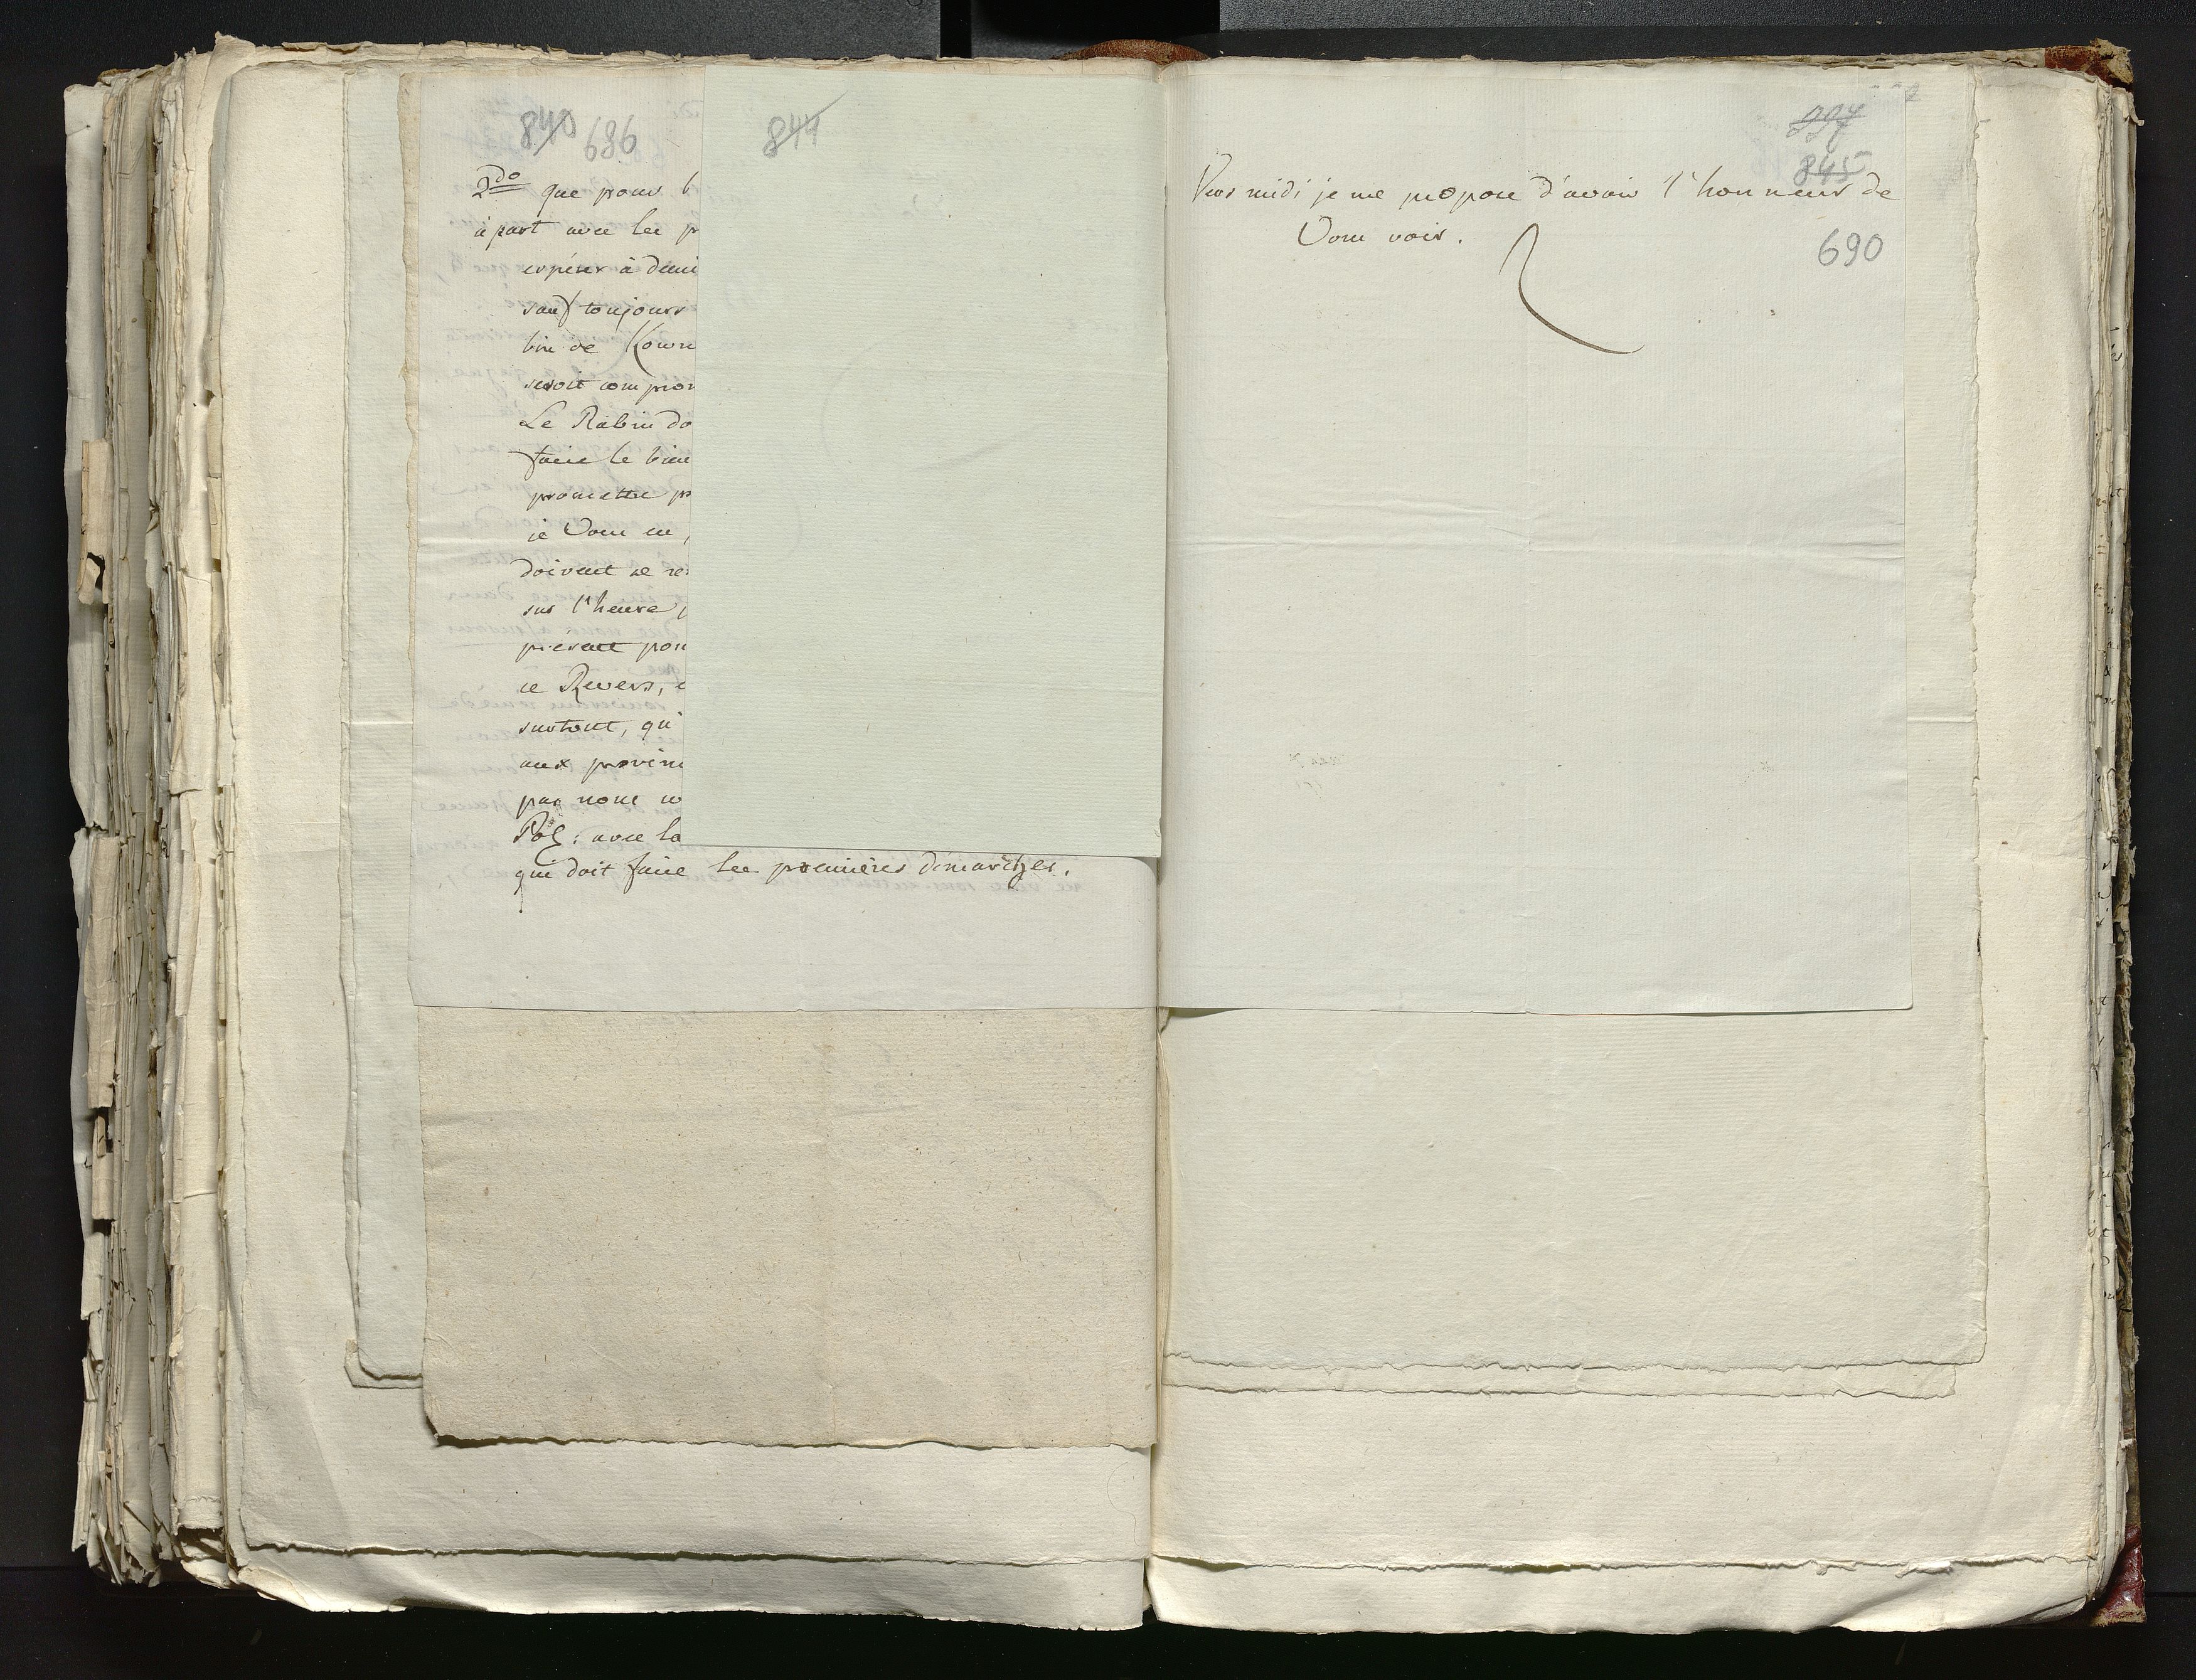 840 686
2do que pour
à part avec les
espérer à deux
sauf toujours
bin de Kown
seroit com
Le Rabin do
faire le bien
promettre
je Vous en
doivent se
sur l'heure
ce Revers,
surtout, qu
aux provin
par nous
Pol: avec la
qui doit faire les premières démarches.
844
997
845
Vers midi je me propose d'avoir l'honneur de
Vous voir.
690